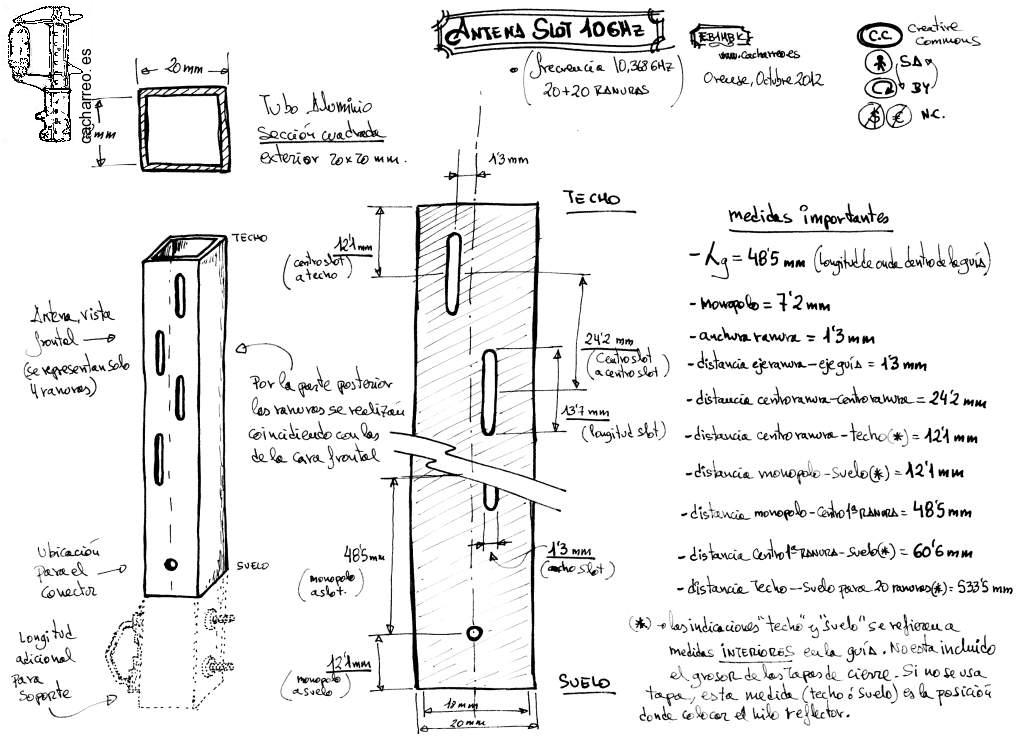 cacharreo.es
ANTENA SLOT 10GHz
(frecuencia 10,368GHz
20+20 RANURAS)
EB1HBK
www.cacharreo.es
Orense, Octubre 2012
C.C. Creative
Commons
SA
BY
$ € N.C.
20mm
mm
Tubo Aluminio
Sección cuadrada
exterior 20x20 mm.
TECHO
Antena, vista
frontal
(se representan solo
4 ranuras)
Ubicación
para el
conector
SUELO
Longitud
adicional
para
soporte
Por la parte posterior
las ranuras se realizan
coincidiendo con las
de la cara frontal
1'3 mm
TECHO
12'1 mm
(centro slot
a techo)
24'2 mm
(centro slot
a centro slot)
13'7 mm
(longitud slot)
48'5 mm
(monopolo
a slot.)
1'3 mm
(ancho slot)
12'1 mm
(monopolo
a suelo)
SUELO
18mm
20mm
medidas importantes
- λg = 48'5 mm (longitud de onda dentro de la guía)
- monopolo = 7'2 mm
- anchura ranura = 1'3 mm
- distancia eje ranura - eje guía = 1'3 mm
- distancia centro ranura - centro ranura = 24'2 mm
- distancia centro ranura - techo (*) = 12'1 mm
- distancia monopolo - suelo (*) = 12'1 mm
- distancia monopolo - centro 1ª RANURA = 48'5 mm
- distancia centro 1ª RANURA - suelo (*) = 60'6 mm
- distancia Techo - Suelo para 20 ranuras (*) = 533'5 mm
(*) → las indicaciones "techo" y "suelo" se refieren a
medidas INTERIORES en la guía. No esta incluido
el grosor de las tapas de cierre. Si no se usa
tapa, esta medida (techo ó suelo) es la posición
donde colocar el hilo reflector.